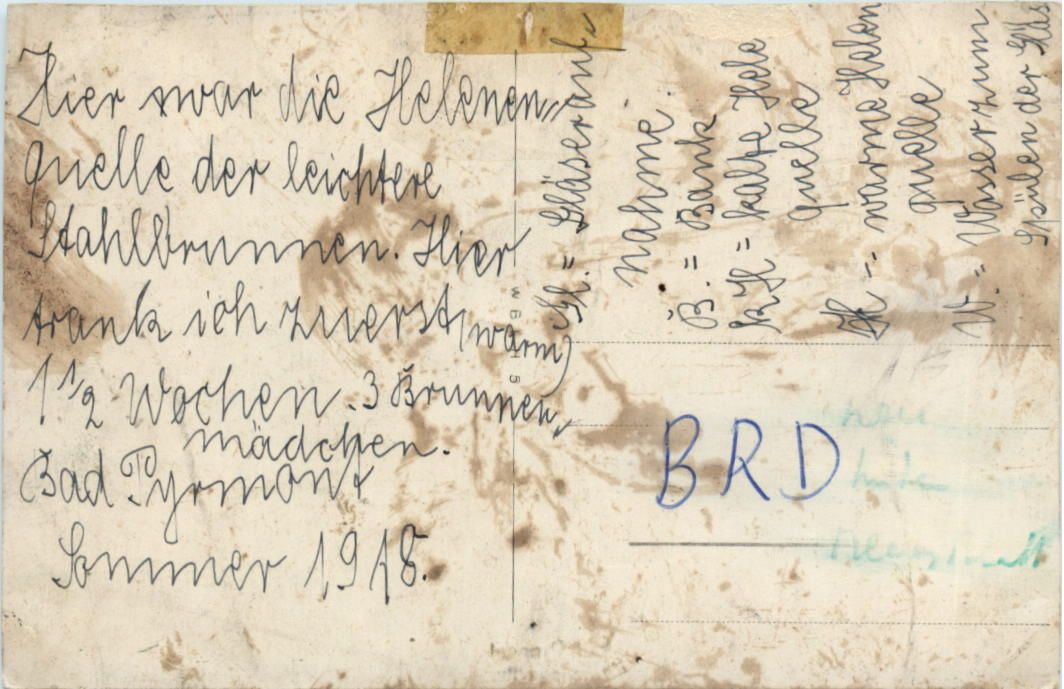 Hier war die Helenen„
quelle der leichtere
Stahlbrunnen. Hier
trank ich zuerst (warm)
1 1/2 Wochen. 3 Brunnen„
mädchen.
Bad Pyrmont
Sommer 1918.
Gl. = Gläserein„
nahme.
B. = Bank
kH = kalte Hele
quelle
H = warme Helen
quelle
W. = Wasser zum
Spülen der Gläs
BRD